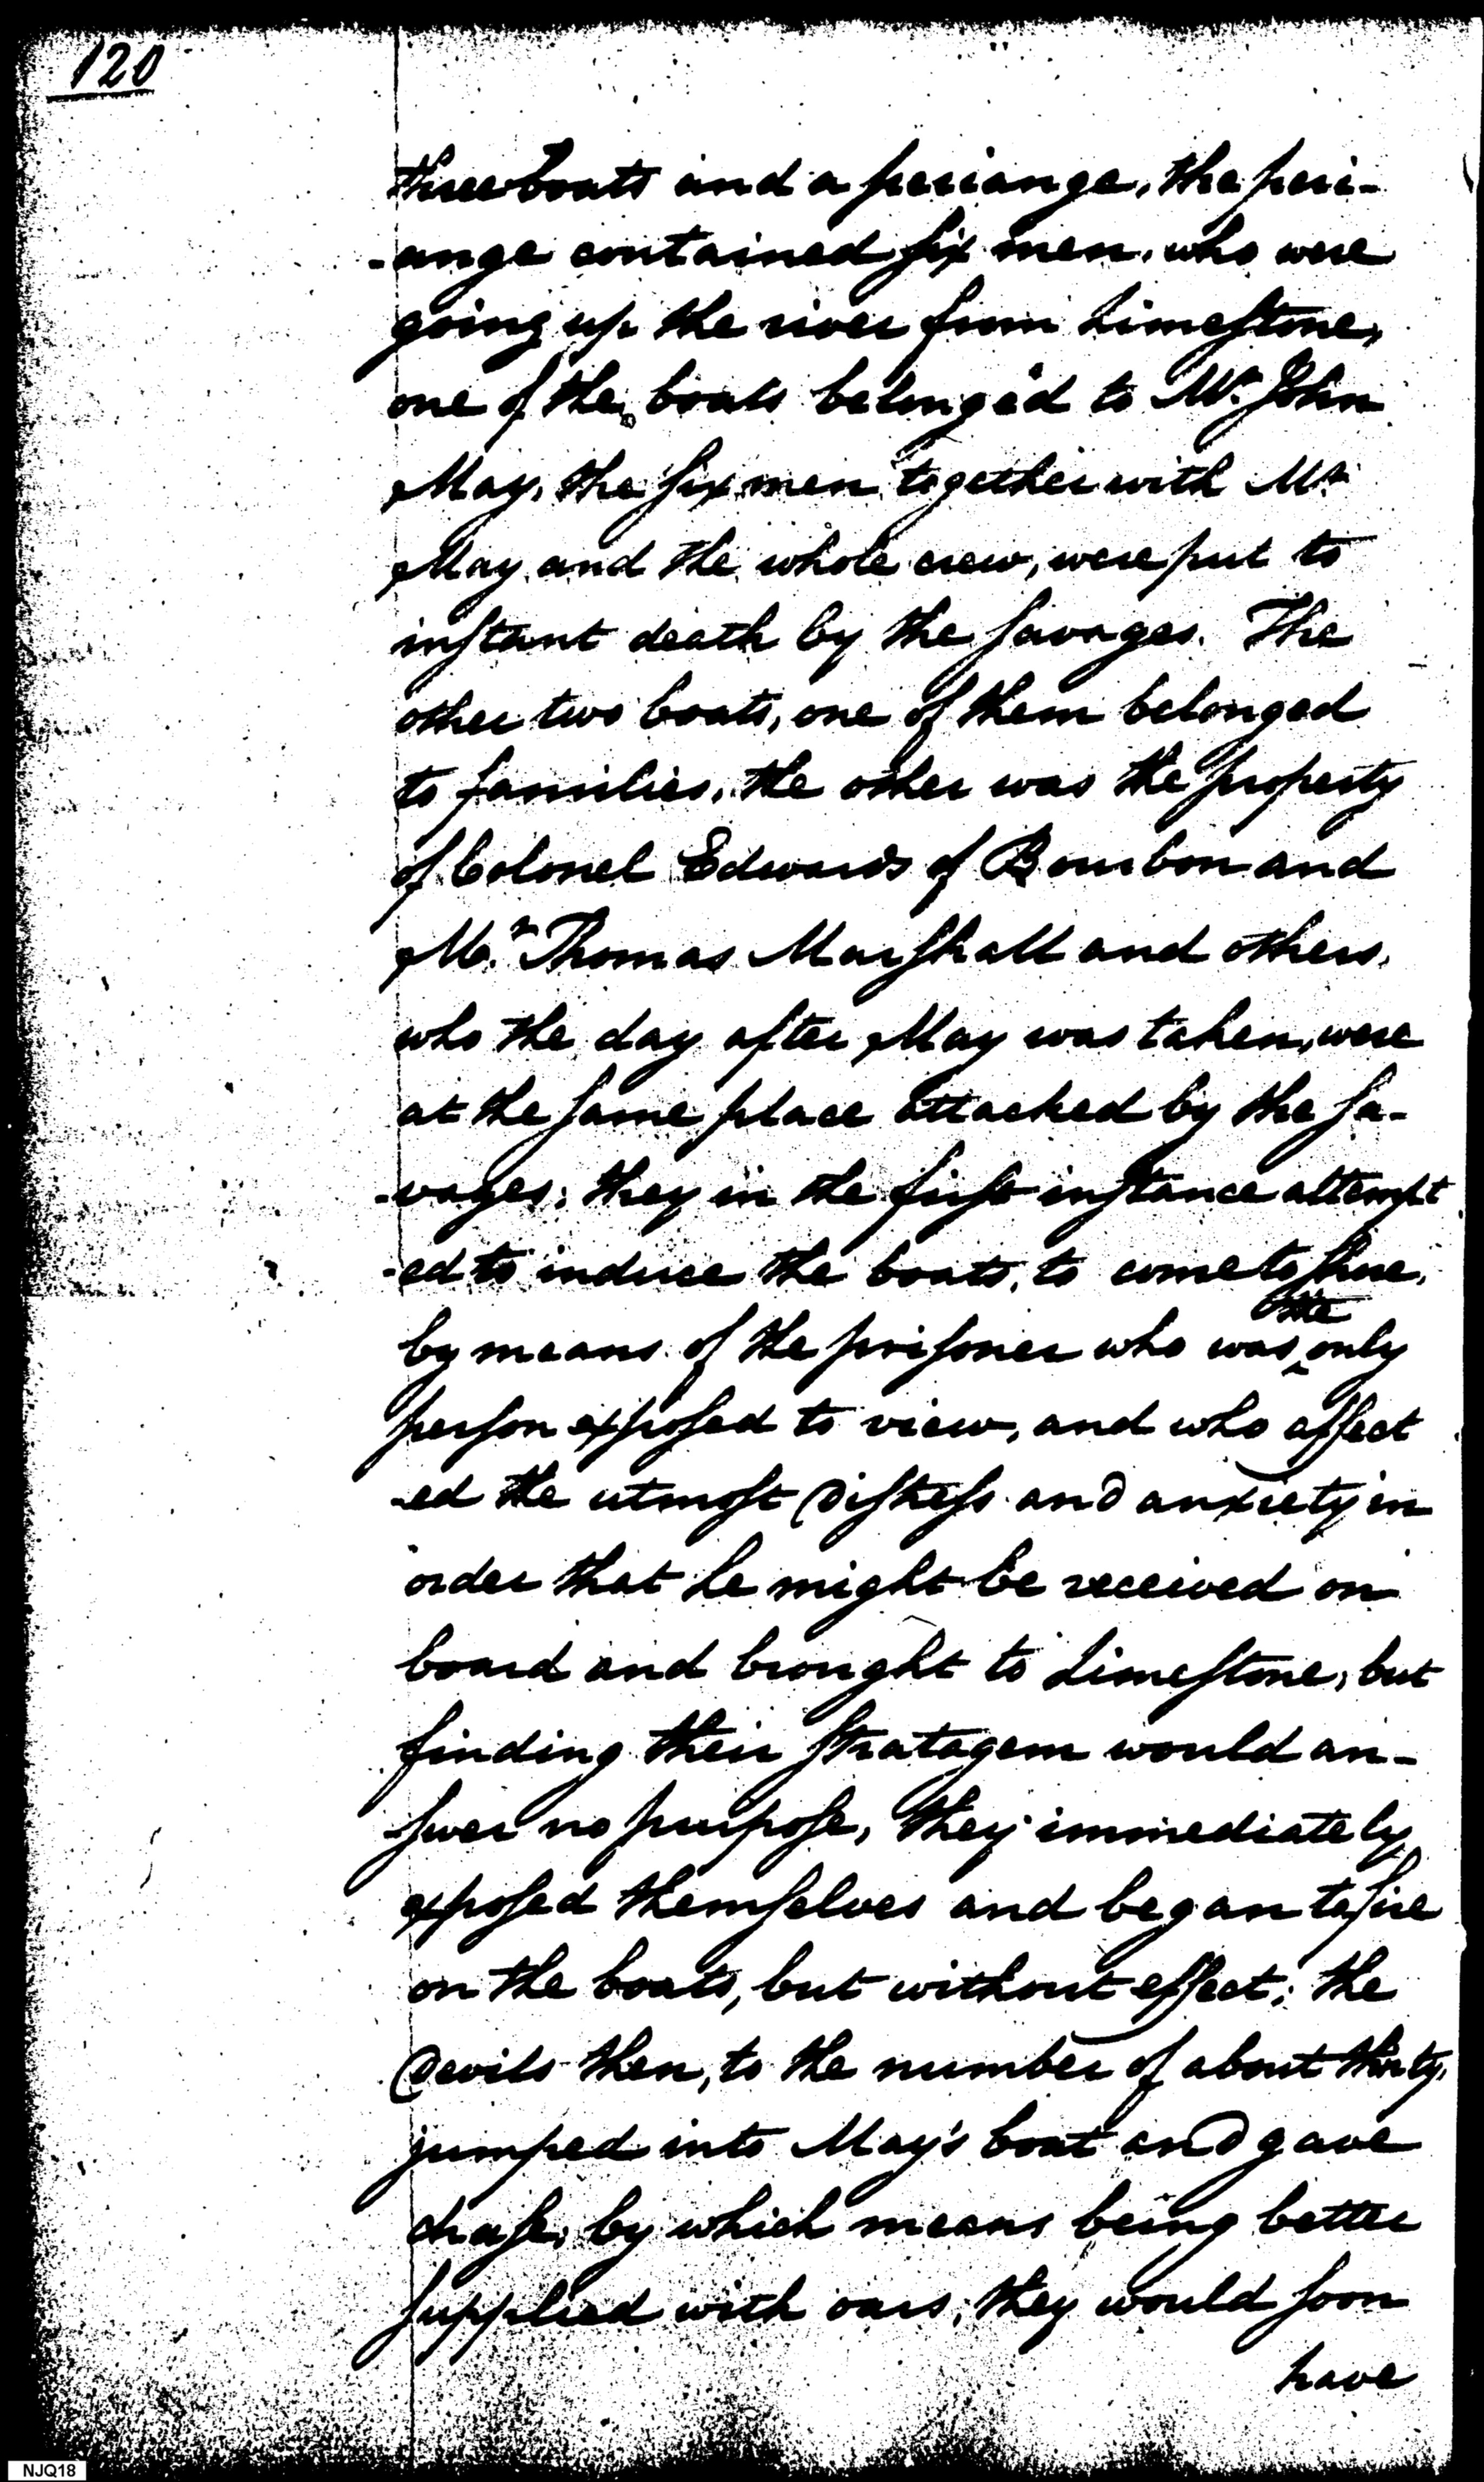 120
three boats and a periange, the peri-
-ange contained six men, who were
going up the river from Limestone,
one of the boats belonged to Mr. John
May, the six men together with Mr.
May and the whole crew, were put to
instant death by the savages. The
other two boats, one of them belonged
to families, the other was the property
of Colonel Edwards of Bourbon and
Mr. Thomas Marshall and others,
who the day after May was taken, were
at the same place attacked by the sa-
-vages; they in the first instance attempt
-ed to induce the boats, to come to shore,
by means of the prisoner who was the only
person exposed to view, and who affect
-ed the utmost distress and anxiety in
order that he might be received on
board and brought to Limestone, but
finding their stratagem would an-
swer no purpose, they immediately
exposed themselves and began to fire
on the boats, but without effect; the
Devils then, to the number of about thirty,
jumped into May's boat and gave
chase; by which means being better
supplied with oars, they would soon
have
NJQ18